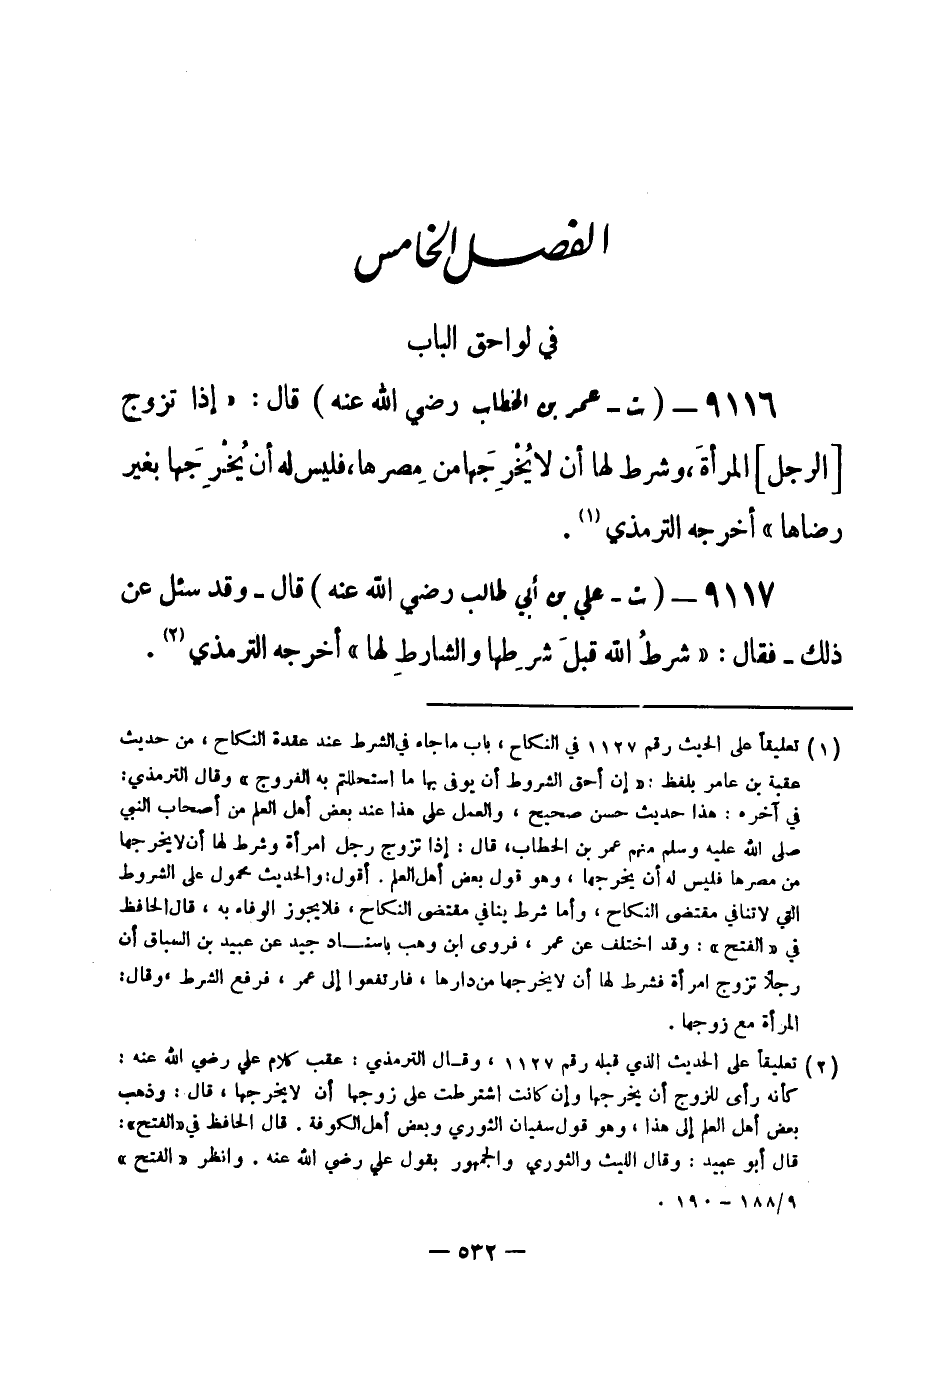 الفصل الخامس
في لواحق الباب
٩١١٦ ــ ( ت ـ عمر بن الخطاب رضي الله عنه ) قال : « إذا تزوج
[الرجل] المرأةَ ، وشرط لها أن لا يُخْرِجَها من مِصرها ، فليس له أن يُخْرِجَها بغير
رضاها » أخرجه الترمذي (١) .
٩١١٧ ــ ( ت ـ علي بن أبي طالب رضي الله عنه ) قال ـ وقد سئل عن
ذلك ـ فقال : « شرطُ الله قبلَ شرطِها والشارطِ لها » أخرجه الترمذي (٢) .
(١) تعليقاً على الحيث رقم ١١٢٧ في النكاح ، باب ماجاء في الشرط عند عقدة النكاح ، من حديث
عقبة بن عامر بلفظ : « إن أحق الشروط أن يوفى بها ما استحللتم به الفروج » وقال الترمذي :
في آخره : هذا حديث حسن صحيح ، والعمل على هذا عند بعض أهل العلم من أصحاب النبي
صلى الله عليه وسلم منهم عمر بن الخطاب، قال : إذا تزوج رجل امرأة وشرط لها أن لا يخرجها
من مصرها فليس له أن يخرجها ، وهو قول بعض أهل العلم . أقول : والحديث محمول على الشروط
التي لاتنافي مقتضى النكاح ، وأما شرط ينافي مقتضى النكاح ، فلا يجوز الوفاء به ، قال الحافظ
في « الفتح » : وقد اختلف عن عمر ، فروى ابن وهب باسناد جيد عن عبيد بن السباق أن
رجلاً تزوج امرأة فشرط لها أن لايخرجها من دارها ، فارتفعوا إلى عمر ، فرفع الشرط ، وقال:
المرأة مع زوجها .
(٢) تعليقاً على الحديث الذي قبله رقم ١١٢٧ ، وقال الترمذي : عقب كلام علي رضي الله عنه :
كأنه رأى للزوج أن يخرجها وإن كانت اشترطت على زوجها أن لايخرجها ، قال : وذهب
بعض أهل العلم إلى هذا ، وهو قول سفيان الثوري وبعض أهل الكوفة . قال الحافظ في «الفتح»:
قال أبو عبيد : وقال الليث والثوري والجمهور بقول علي رضي الله عنه . وانظر « الفتح »
٩/١٨٨ - ١٩٠ .
— ٥٣٢ —